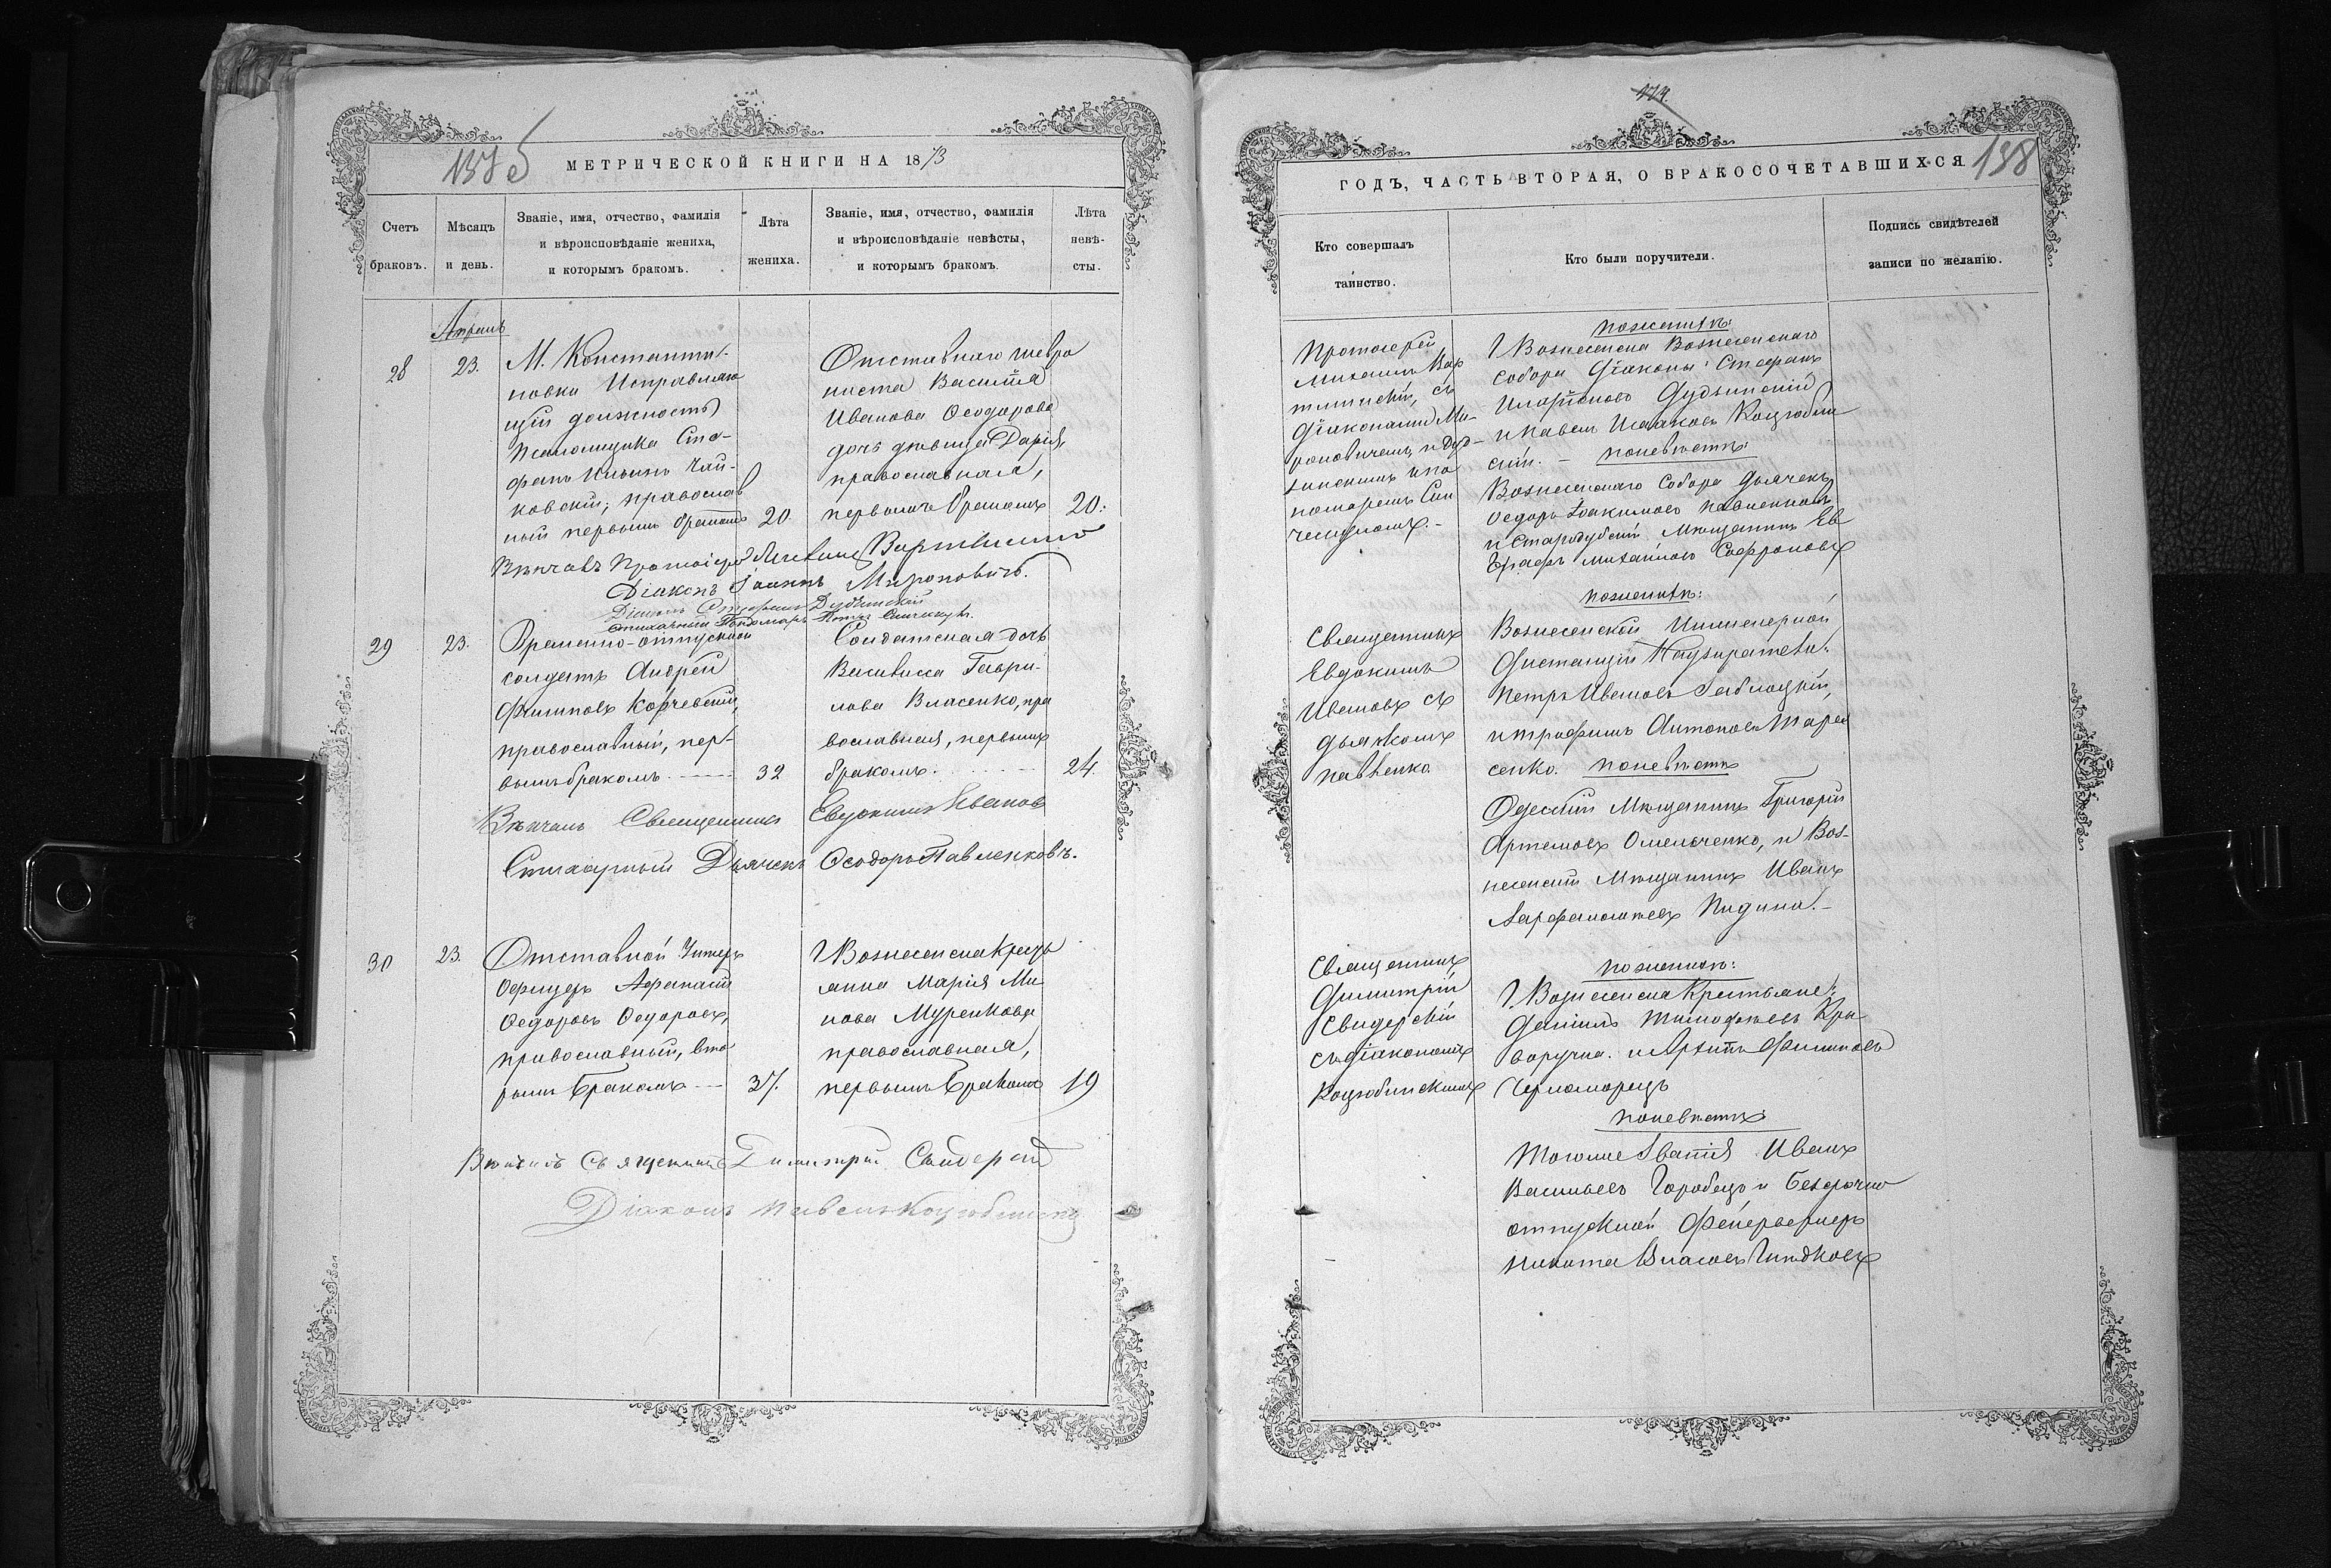 137 об
МЕТРИЧЕСКОЙ КНИГИ НА 1873
Счетъ браковъ.
Мѣсяцъ и день.
Званіе, имя, отчество, фамилія
и вѣроисповѣданіе жениха,
и которымъ бракомъ.
Лѣта жениха.
Званіе, имя, отчество, фамилія
и вѣроисповѣданіе невѣсты,
и которымъ бракомъ.
Лѣта невѣ-
сты.
Апрель
28
23.
М. Константи-
новки Исправляю
щій должность
Псаломщика Сте-
фанъ Ильинъ Чай-
ковскій, православ
ный первымъ бракомъ
20.
Отставнаго шевро
ниста Василія
Иванова Ѳеодорова
дочь дѣвица Дарія,
православная,
первымъ бракомъ
20.
Вѣнчалъ Протоіерей
Діаконъ Іоаннъ Мироновичъ.
Діаконъ Стефанъ Дудзинскій
Стихарный Пономарь
29
23.
Временно-отпускной
солдатъ Андрей
Филиповъ Корчевскій,
православный, пер-
вымъ бракомъ
32
Солдатская дочь
Василиса Гаври-
лова Власенко, пра
вославная, первымъ
бракомъ.
24.
Вѣнчалъ Священникъ Евдокимъ Ивановъ
Стихарный Дьячекъ Ѳеодоръ Павленковъ.
30
23.
Отставной Унтеръ
Офицеръ Афанасій
Ѳедоровъ Ѳедоровъ,
православный, вто
рымъ бракомъ
37.
Г. Вознесенска Крестья
янка Марія Ми
нова Муренкова
православная,
первымъ бракомъ
19
Вѣнчалъ Священникъ Димитрій Свидерскій
Діаконъ Павелъ Коцюбинскій
174.
138
ГОДЪ, ЧАСТЬ ВТОРАЯ, О БРАКОСОЧЕТАВШИХСЯ.
Кто совершалъ
таинство.
Кто были поручители.
Подпись свидѣтелей
записи по желанію.
Протоіерей
Михаилъ Вар
съ
Діаконами Ми-
роновичемъ и Дуд-
зинскимъ и по
номаремъ
по женихѣ:
Г. Вознесенска Вознесенскаго
собора Діаконы: Стефанъ
Дудзинскій
и Павелъ Исааковъ Коцюбин
скій. - по невѣстѣ:
Вознесенскаго собора Дьячекъ
Ѳедоръ Іоакимовъ Павленковъ
и Стародубскій Мѣщанинъ Ев
графъ Михайловъ Сафроновъ
Священникъ
Евдокимъ
Ивановъ съ
дьячкомъ
Павленко.
по женихѣ:
Вознесенской Инженерной
Дистанціи Надзиратель
Петръ Ивановъ Заблоцкій,
и Трофимъ Антоновъ Тара
сенко. по невѣстѣ
Одесскій Мѣщанинъ Григорій
Артемовъ Омельченко, и Воз-
несенскій Мѣщанинъ Иванъ
Варфаломеевъ
Священникъ
Димитрій
Свидерскій
съ діакономъ
Коцюбинскимъ
по женихѣ:
Г. Вознесенска Крестьяне:
Даніилъ Тимофеевъ Кри
воручка. и Архипъ Филиповъ
Черноморецъ
по невѣстѣ:
Тогоже званія Иванъ
Васильевъ Горобецъ и безсрочно
отпускной Фейерверкеръ
Никита Власовъ